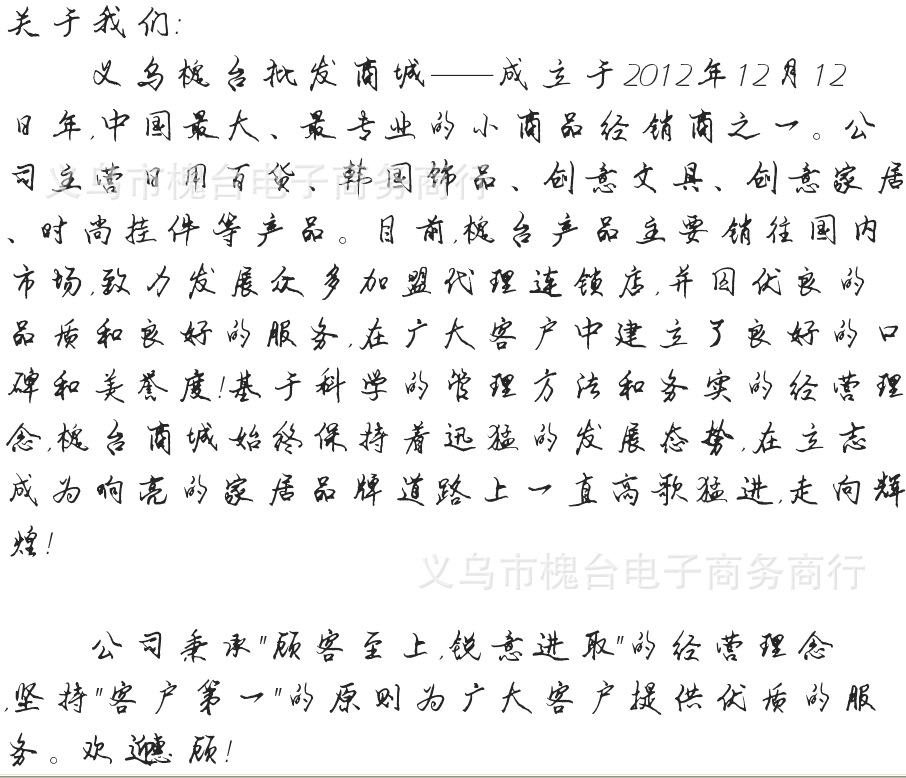 关于我们:
义乌槐台批发商城——成立于2012年12月12
日年,中国最大、最专业的小商品经销商之一。公
司主营日用百货、韩国饰品、创意文具、创意家居
义乌市槐台电子商务商行
、时尚挂件等产品。目前,槐台产品主要销往国内
市场,致力发展众多加盟代理连锁店,并因优良的
品质和良好的服务,在广大客户中建立了良好的口
碑和美誉度!基于科学的管理方法和务实的经营理
念,槐台商城始终保持着迅猛的发展态势,在立志
成为响亮的家居品牌道路上一直高歌猛进,走向辉
煌!
义乌市槐台电子商务商行
公司秉承"顾客至上,锐意进取"的经营理念
,坚持"客户第一"的原则为广大客户提供优质的服
务。欢迎惠顾!